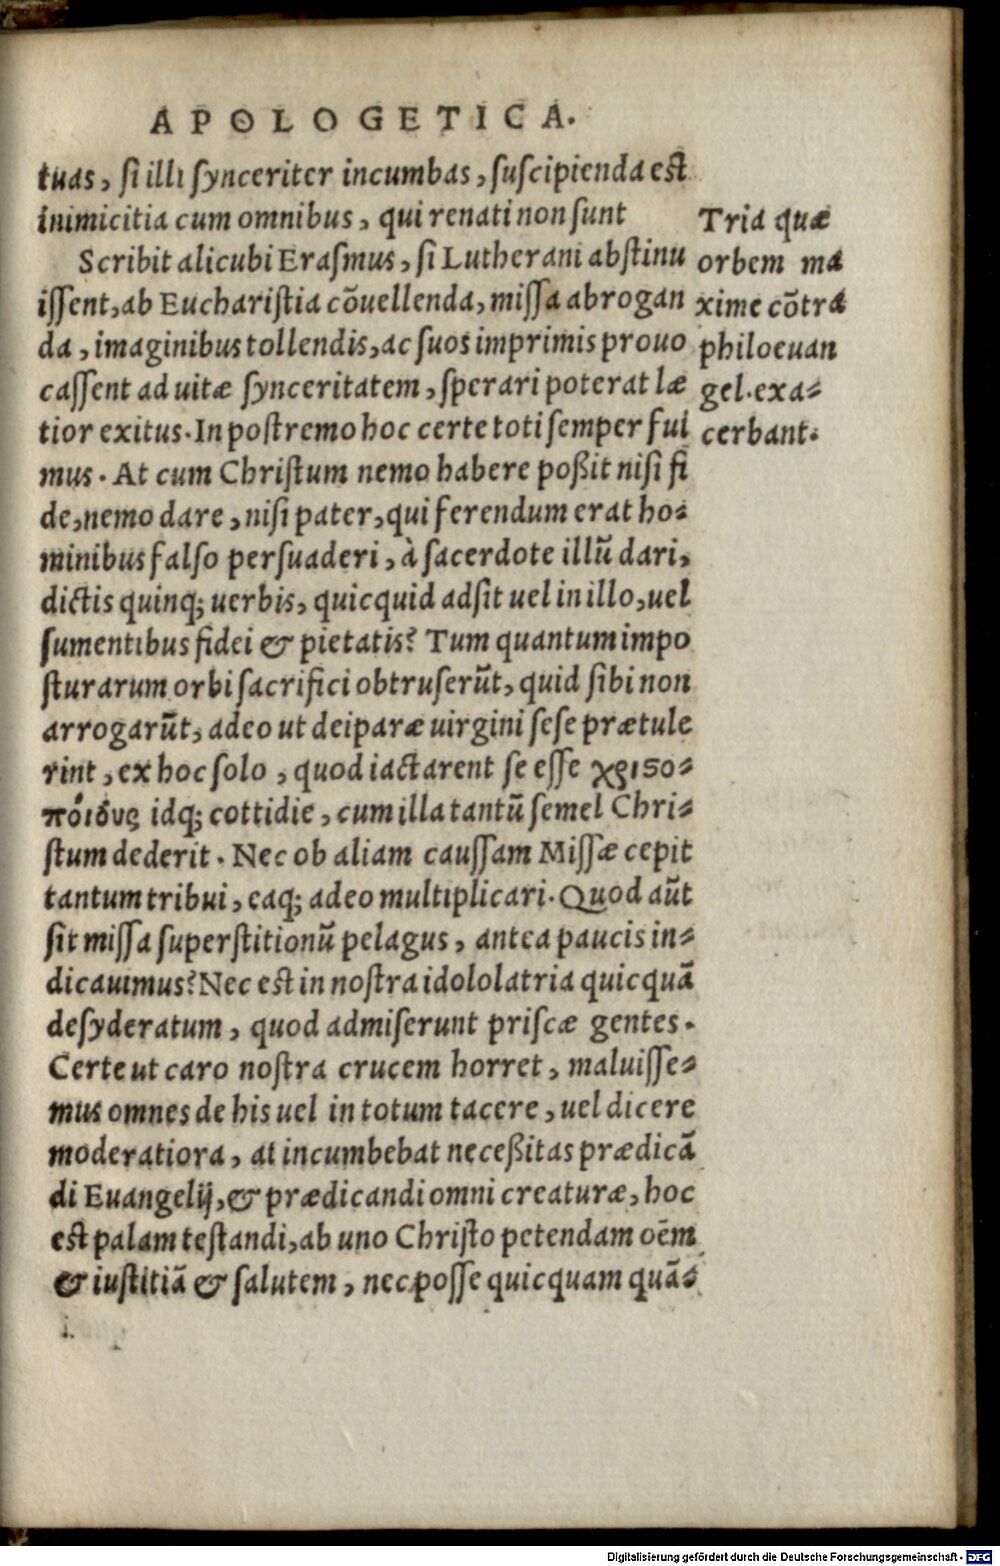 APOLOGETICA.
tuas, si illi synceriter incumbas, suscipienda est
inimicitia cum omnibus, qui renati non sunt
Scribit alicubi Erasmus, si Lutherani abstinu
issent, ab Eucharistia cõuellenda, missa abrogan
da, imaginibus tollendis, ac suos imprimis prouo
cassent ad uitæ synceritatem, sperari poterat læ
tior exitus. In postremo hoc certe toti semper fui
mus. At cum Christum nemo habere poßit nisi fi
de, nemo dare, nisi pater, qui ferendum erat ho-
minibus falso persuaderi, à sacerdote illũ dari,
dictis quinq; uerbis, quicquid adsit uel in illo, uel
sumentibus fidei & pietatis? Tum quantum impo
sturarum orbi sacrifici obtruserũt, quid sibi non
arrogarũt, adeo ut deiparæ uirgini sese prætule
rint, ex hoc solo, quod iactarent se esse χριϛο-
ποίους idq; cottidie, cum illa tantũ semel Chri-
stum dederit. Nec ob aliam caussam Missæ cepit
tantum tribui, eaq; adeo multiplicari. Quod aũt
sit missa superstitionũ pelagus, antea paucis in-
dicauimus? Nec est in nostra idololatria quicquã
desyderatum, quod admiserunt priscæ gentes.
Certe ut caro nostra crucem horret, maluisse-
mus omnes de his uel in totum tacere, uel dicere
moderatiora, at incumbebat neceßitas prædicã
di Euangelij, & prædicandi omni creaturæ, hoc
est palam testandi, ab uno Christo petendam oẽm
& iustitiã & salutem, nec posse quicquam quã-
Tria quæ
orbem ma
xime cõtra
philoeuan
gel. exa-
cerbant.
Digitalisierung gefördert durch die Deutsche Forschungsgemeinschaft - DFG